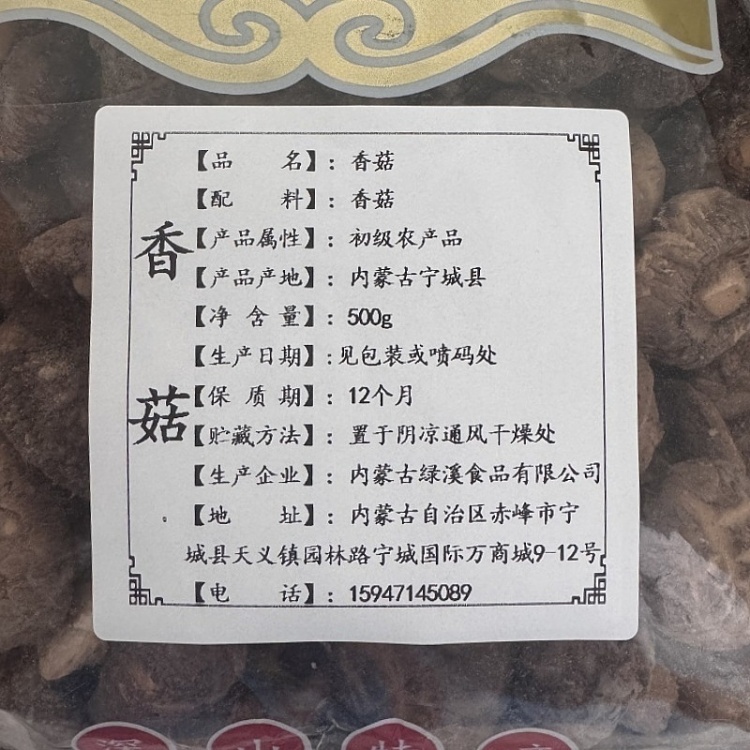 香菇
【品 名】：香菇
【配 料】：香菇
【产品属性】：初级农产品
【产品产地】：内蒙古宁城县
【净 含 量】：500g
【生产日期】:见包装或喷码处
【保 质 期】：12个月
【贮藏方法】：置于阴凉通风干燥处
【生产企业】：内蒙古绿溪食品有限公司
【地 址】：内蒙古自治区赤峰市宁
城县天义镇园林路宁城国际万商城9-12号
【电 话】：15947145089